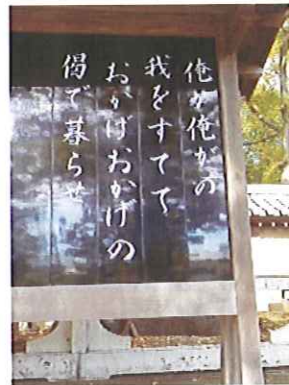 俺が俺がの
我をすてて
おかげおかげの
偈で暮らせ